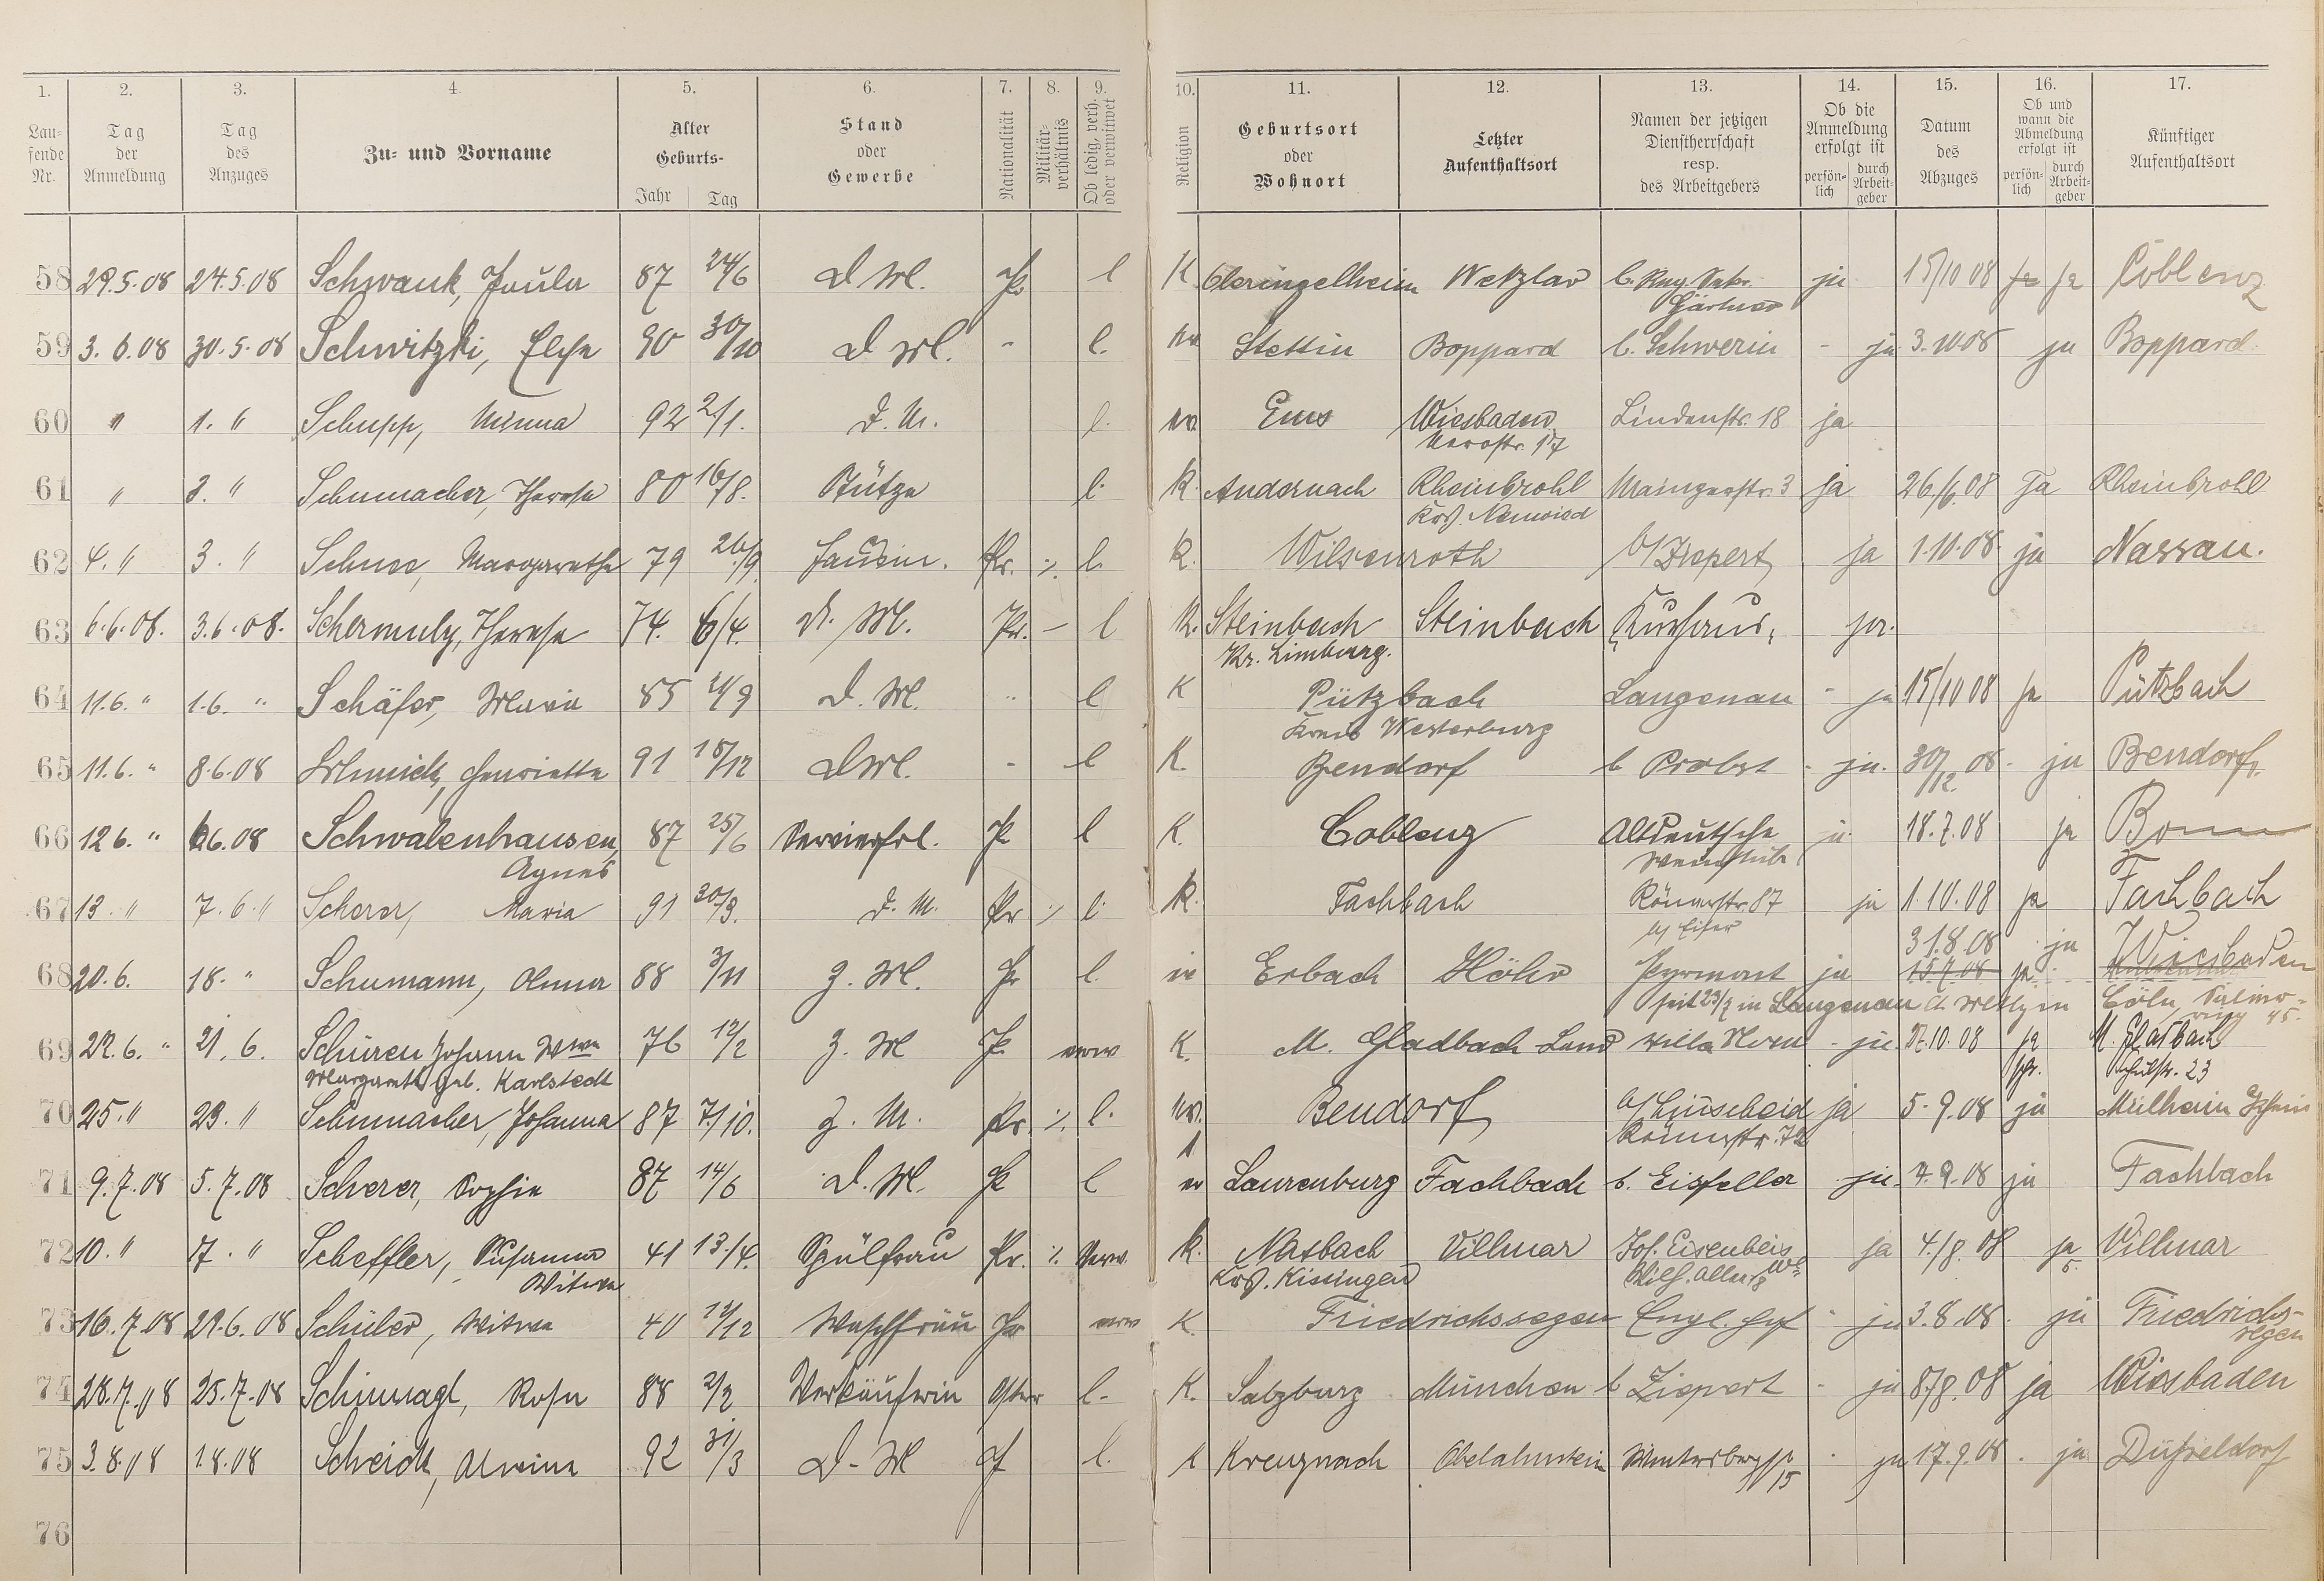 1. 2. 3. 4. 5. 6. 7. 8. 9. 10. 11. 12. 13. 14. 15. 16. 17.
Lau-
fende
Nr.
Tag
der
Anmeldung
Tag
des
Anzuges
Zu- und Vorname
Alter
Geburts-
Jahr Tag
Stand
oder
Gewerbe
Nationalität
Militär-
verhältnis
Ob ledig, verh.
oder verwitwet
Religion
Geburtsort
oder
Wohnort
Letzter
Aufenthaltsort
Namen der jetzigen
Dienstherrschaft
resp.
des Arbeitgebers
Ob die
Anmeldung
erfolgt ist
persön-
lich
durch
Arbeit-
geber
Datum
des
Abzuges
Ob und
wann die
Abmeldung
erfolgt ist
persön-
lich
durch
Arbeit-
geber
Künftiger
Aufenthaltsort
58 29.5.08 24.5.08 Schwank, Paula 87 24/6 D M. Pr l K Oberingelheim Wetzlar ja 15/10 08 ja ja Coblenz
Gärtner
59 3.6.08 30.5.08 Schwitzki, Else 90 30/10 D M. - l. Stettin Boppard b. Schwerin - ja 3.10.08 ja Boppard.
60 " 1. " Schupp, Minna 92 2/1. D. M. l. Ems Wiesbaden Lindenstr. 18 ja
Nerostr. 17
61 " 3. " Schumacher, Therese 80 16/8. Stütze l. K. Andernach Rheinbrohl Mainzerstr. 3 ja 26./6.08 Ja Rheinbrohl
Krs. Neuwied
62 4. " 3. " Schnee, Margarethe 79 26/9. Hausm. Pr. ./. l. K. Wilsenroth b/ Ziepert ja 1.10.08. ja Nassau.
63 6.6.08. 3.6.08. Schermuly, Therese 74. 6/4. D. M. Pr. - l K. Steinbach Steinbach Kurhaus, ja.
Kr. Limburg.
64 11.6. " 1.6. " Schäfer, Maria 85 D. M. " l K Pützbach Langenau - ja 15/10 08 ja Pützbach
Kreis Westerburg
65 11.6. " 8.6.08 Schmick, Henriette 91 D M. - l K. Bendorf b Probst - ja. 30/12. 08. ja Bendorf.
66 12 6. " 6.08 Schwabenhausen, 87 25/6 Servierfrl. Pr l K. Coblenz Altdeutsche ja 18.7.08 ja Bonn
Agnes Weinstube
67 13. " 7.6. " Scherer, Maria 91 30/3. D. M. Pr ./. l. K. Fachbach Römerstr. 87 ja 1.10.08 ja Fachbach
68 20.6. 18. " Schumann, Anna 88 3/11 Z. M. Pr l. Erbach Höhr Pyrmont ja 31.8.08 ja Wiesbaden
15.7.08 ja
seit 23/7 in Langenau Cöln,
69 22.6. " 21.6. Schüren Johann Wwe 76 12/2 Z. M Pr verw K. M. Gladbach-Land Villa - ja 10.08 ja M. Gladbach
Margareth geb. Karlstedt Schulstr. 23
70 25. " 23. " Schumacher, Johanna 87 7/10. Z. M. Pr. ./. l. Bendorf b/ Lüscheid ja 5.9.08 ja Mülheim Rhein
Römerstr. 72
71 9.7.08 5.7.08 Scherer, Sophie 87 14/6 D. M. Pr l Laurenburg Fachbach b. Eisfeller ja. 7.9.08 ja Fachbach
72 10. " 7. " Scheffler, Susanna 41 13./4. Spülfrau Pr. ./. Verw. K. Villmar Jos. Eisenbeis ja 4./8.08 ja Villmar
Witwe Krs. Kissingen
73 16.7.08 29.6.08 Schüler, Witwe 40 Waschfrau Pr verw K. Friedrichssegen Engl. Hof - ja 3.8.08. ja Friedrichs-
segen
74 28.7.08 25.7.08 Schinnagl, Rosa 88 2/2 Verkäuferin Östr l. K. Salzburg München b Ziepert - ja 8/8.08 ja Wiesbaden
75 3.8.08 1.8.08 Scheick, Alwine 92 31/3 D. M l. Kreuznach Oberlahnstein - ja 17.9.08. ja Düsseldorf
76